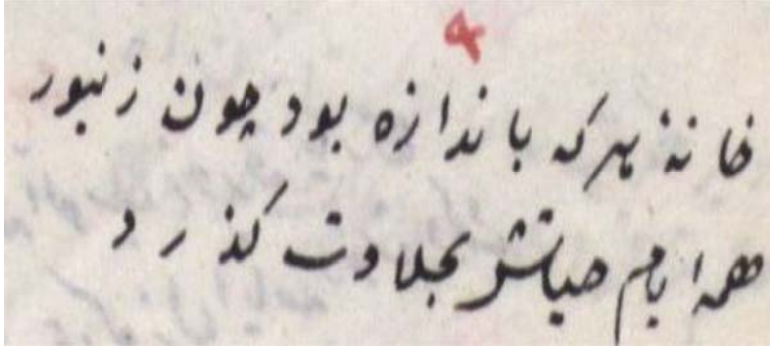 ۴
خانهٔ هرکه باندازه بود چون زنبور
همه ایام حیاتش بحلاوت گذرد